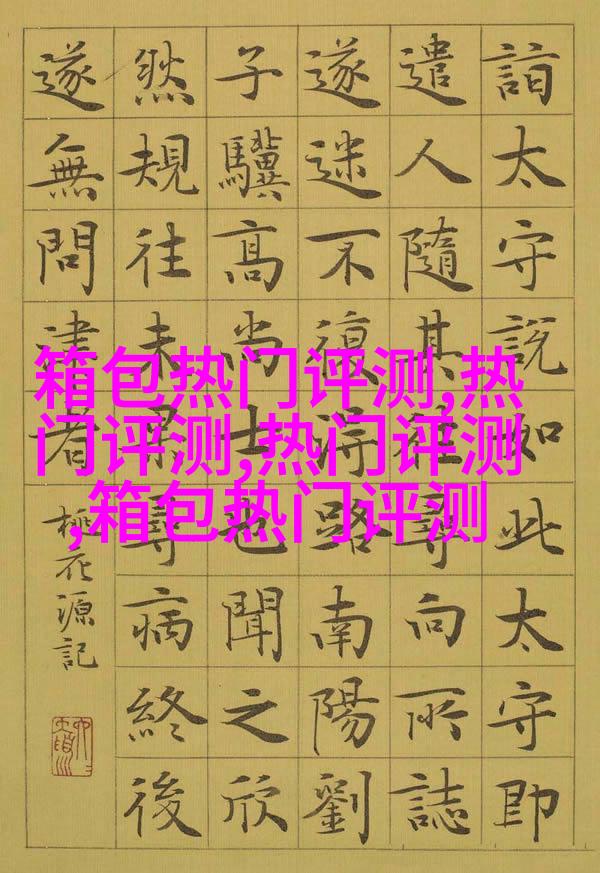 詣太守說如此太守即
遣人隨其往尋向所誌
遂迷不復得路南陽劉
子驥高尚士也聞之欣
然規往未果尋病終後
遂無問津者
桃花源記
箱包热门评测,热
门评测,热门评测
,箱包热门评测